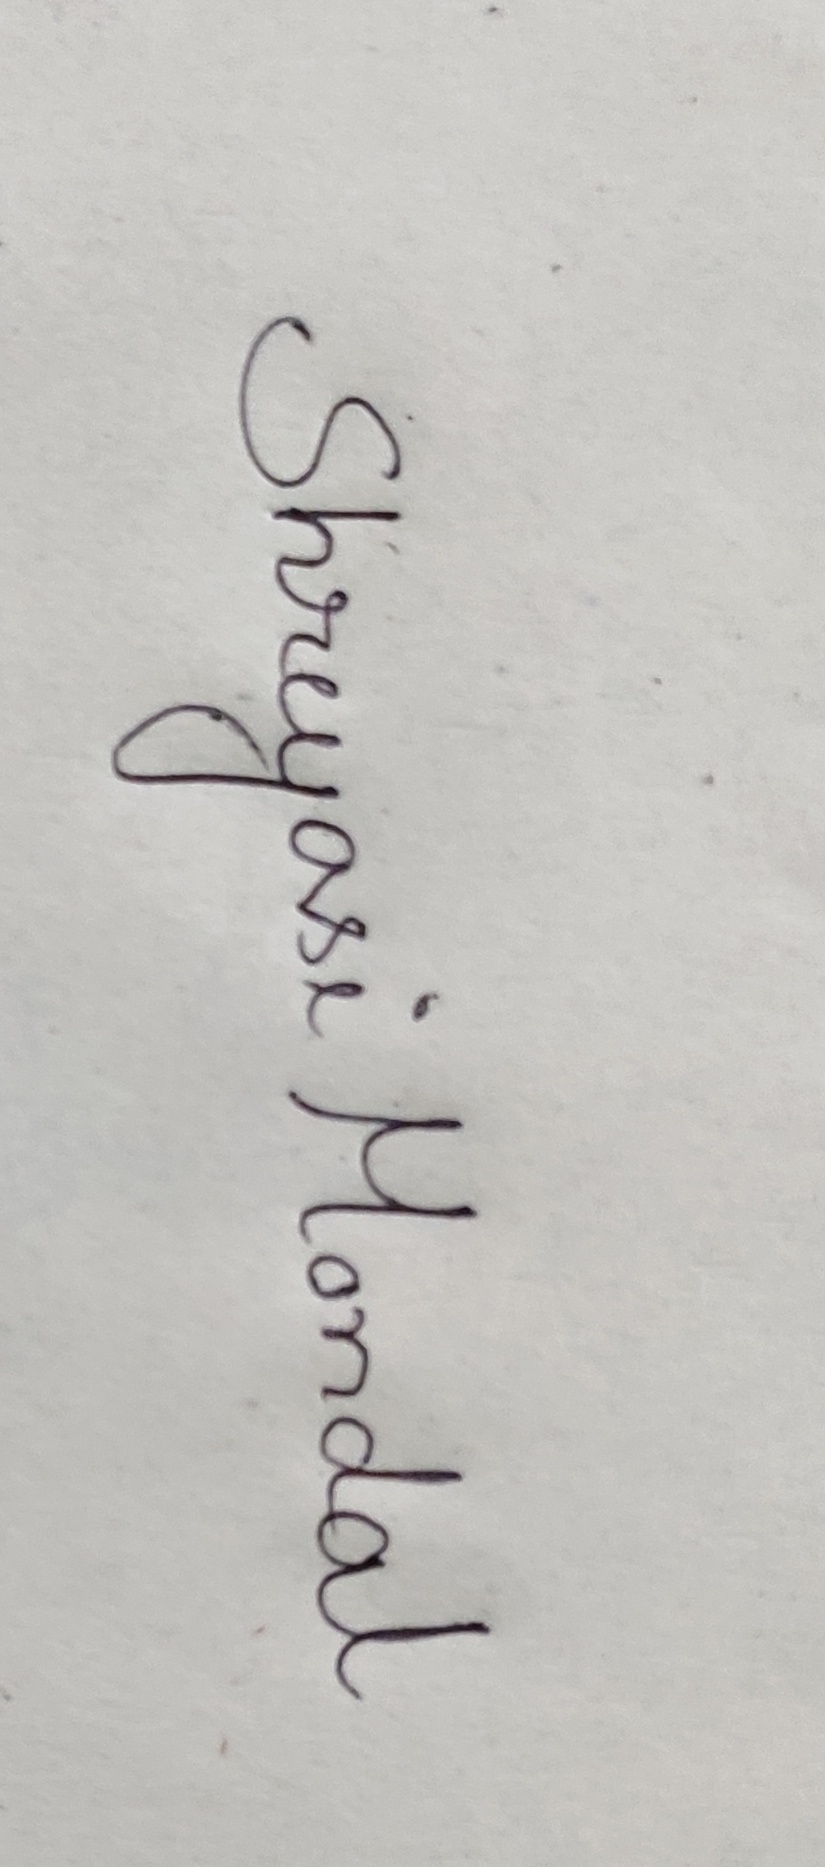 Shreyasi Mondal